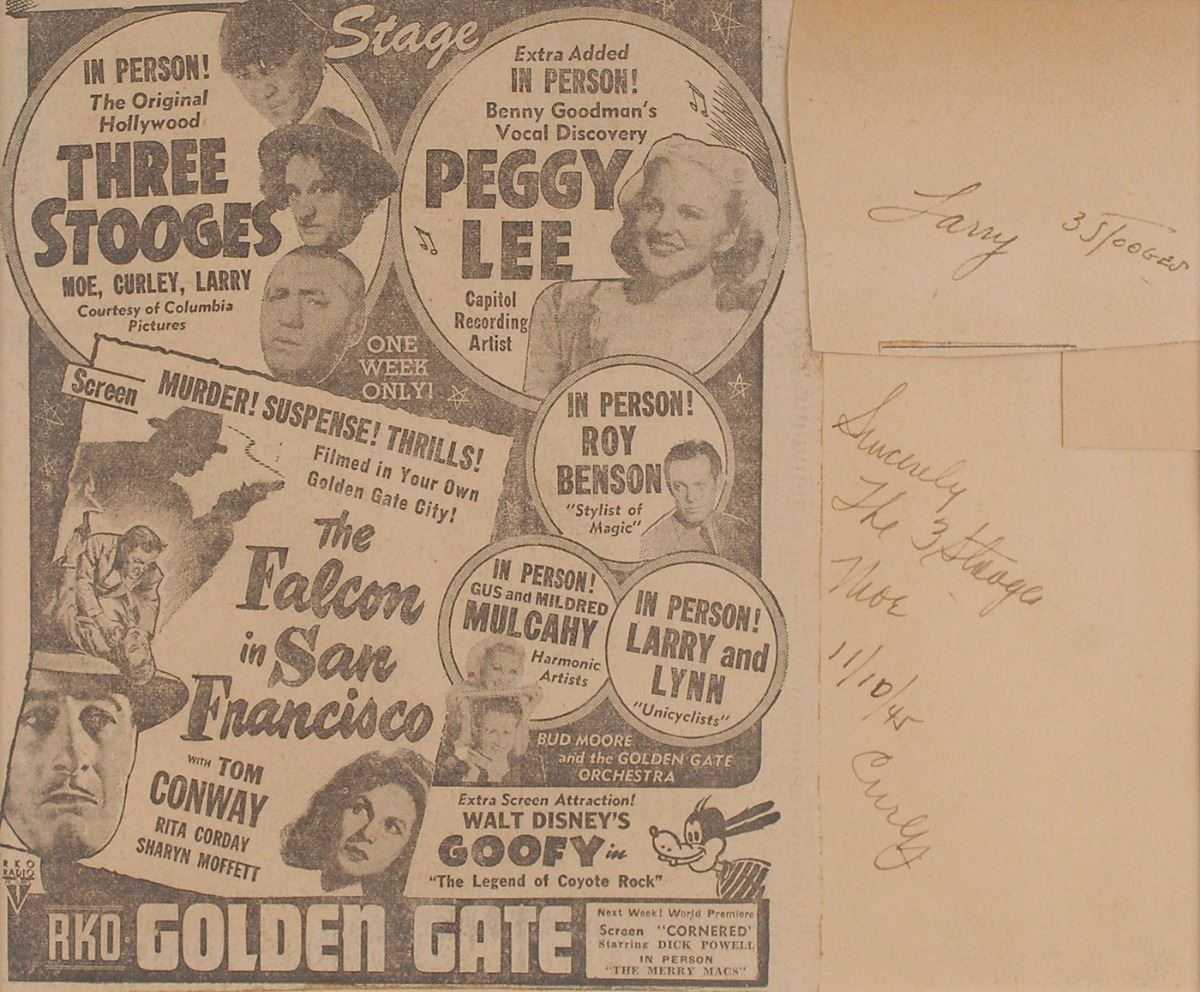 Stage
IN PERSON!
The Original
Hollywood
THREE
STOOGES
MOE, CURLEY, LARRY
Courtesy of Columbia
Pictures
Extra Added
IN PERSON!
Benny Goodman's
Vocal Discovery
PEGGY
LEE
Capitol
Recording
Artist
ONE
WEEK
ONLY!
Screen
MURDER! SUSPENSE! THRILLS!
Filmed in Your Own
Golden Gate City!
The
Falcon
in San
Francisco
WITH TOM
CONWAY
RITA CORDAY
SHARYN MOFFETT
IN PERSON!
ROY
BENSON
"Stylist of
Magic"
IN PERSON!
GUS and MILDRED
MULCAHY
Harmonic
Artists
IN PERSON!
LARRY and
LYNN
"Unicyclists"
BUD MOORE
and the GOLDEN GATE
ORCHESTRA
Extra Screen Attraction!
WALT DISNEY'S
GOOFY in
"The Legend of Coyote Rock"
RKO
RADIO
RKO GOLDEN GATE
Next Week! World Premiere
Screen "CORNERED"
Starring DICK POWELL
IN PERSON
"THE MERRY MACS"
Larry 3 STOOGES
Sincerely
The 3 Stooges
Moe
11/10/45
Curly